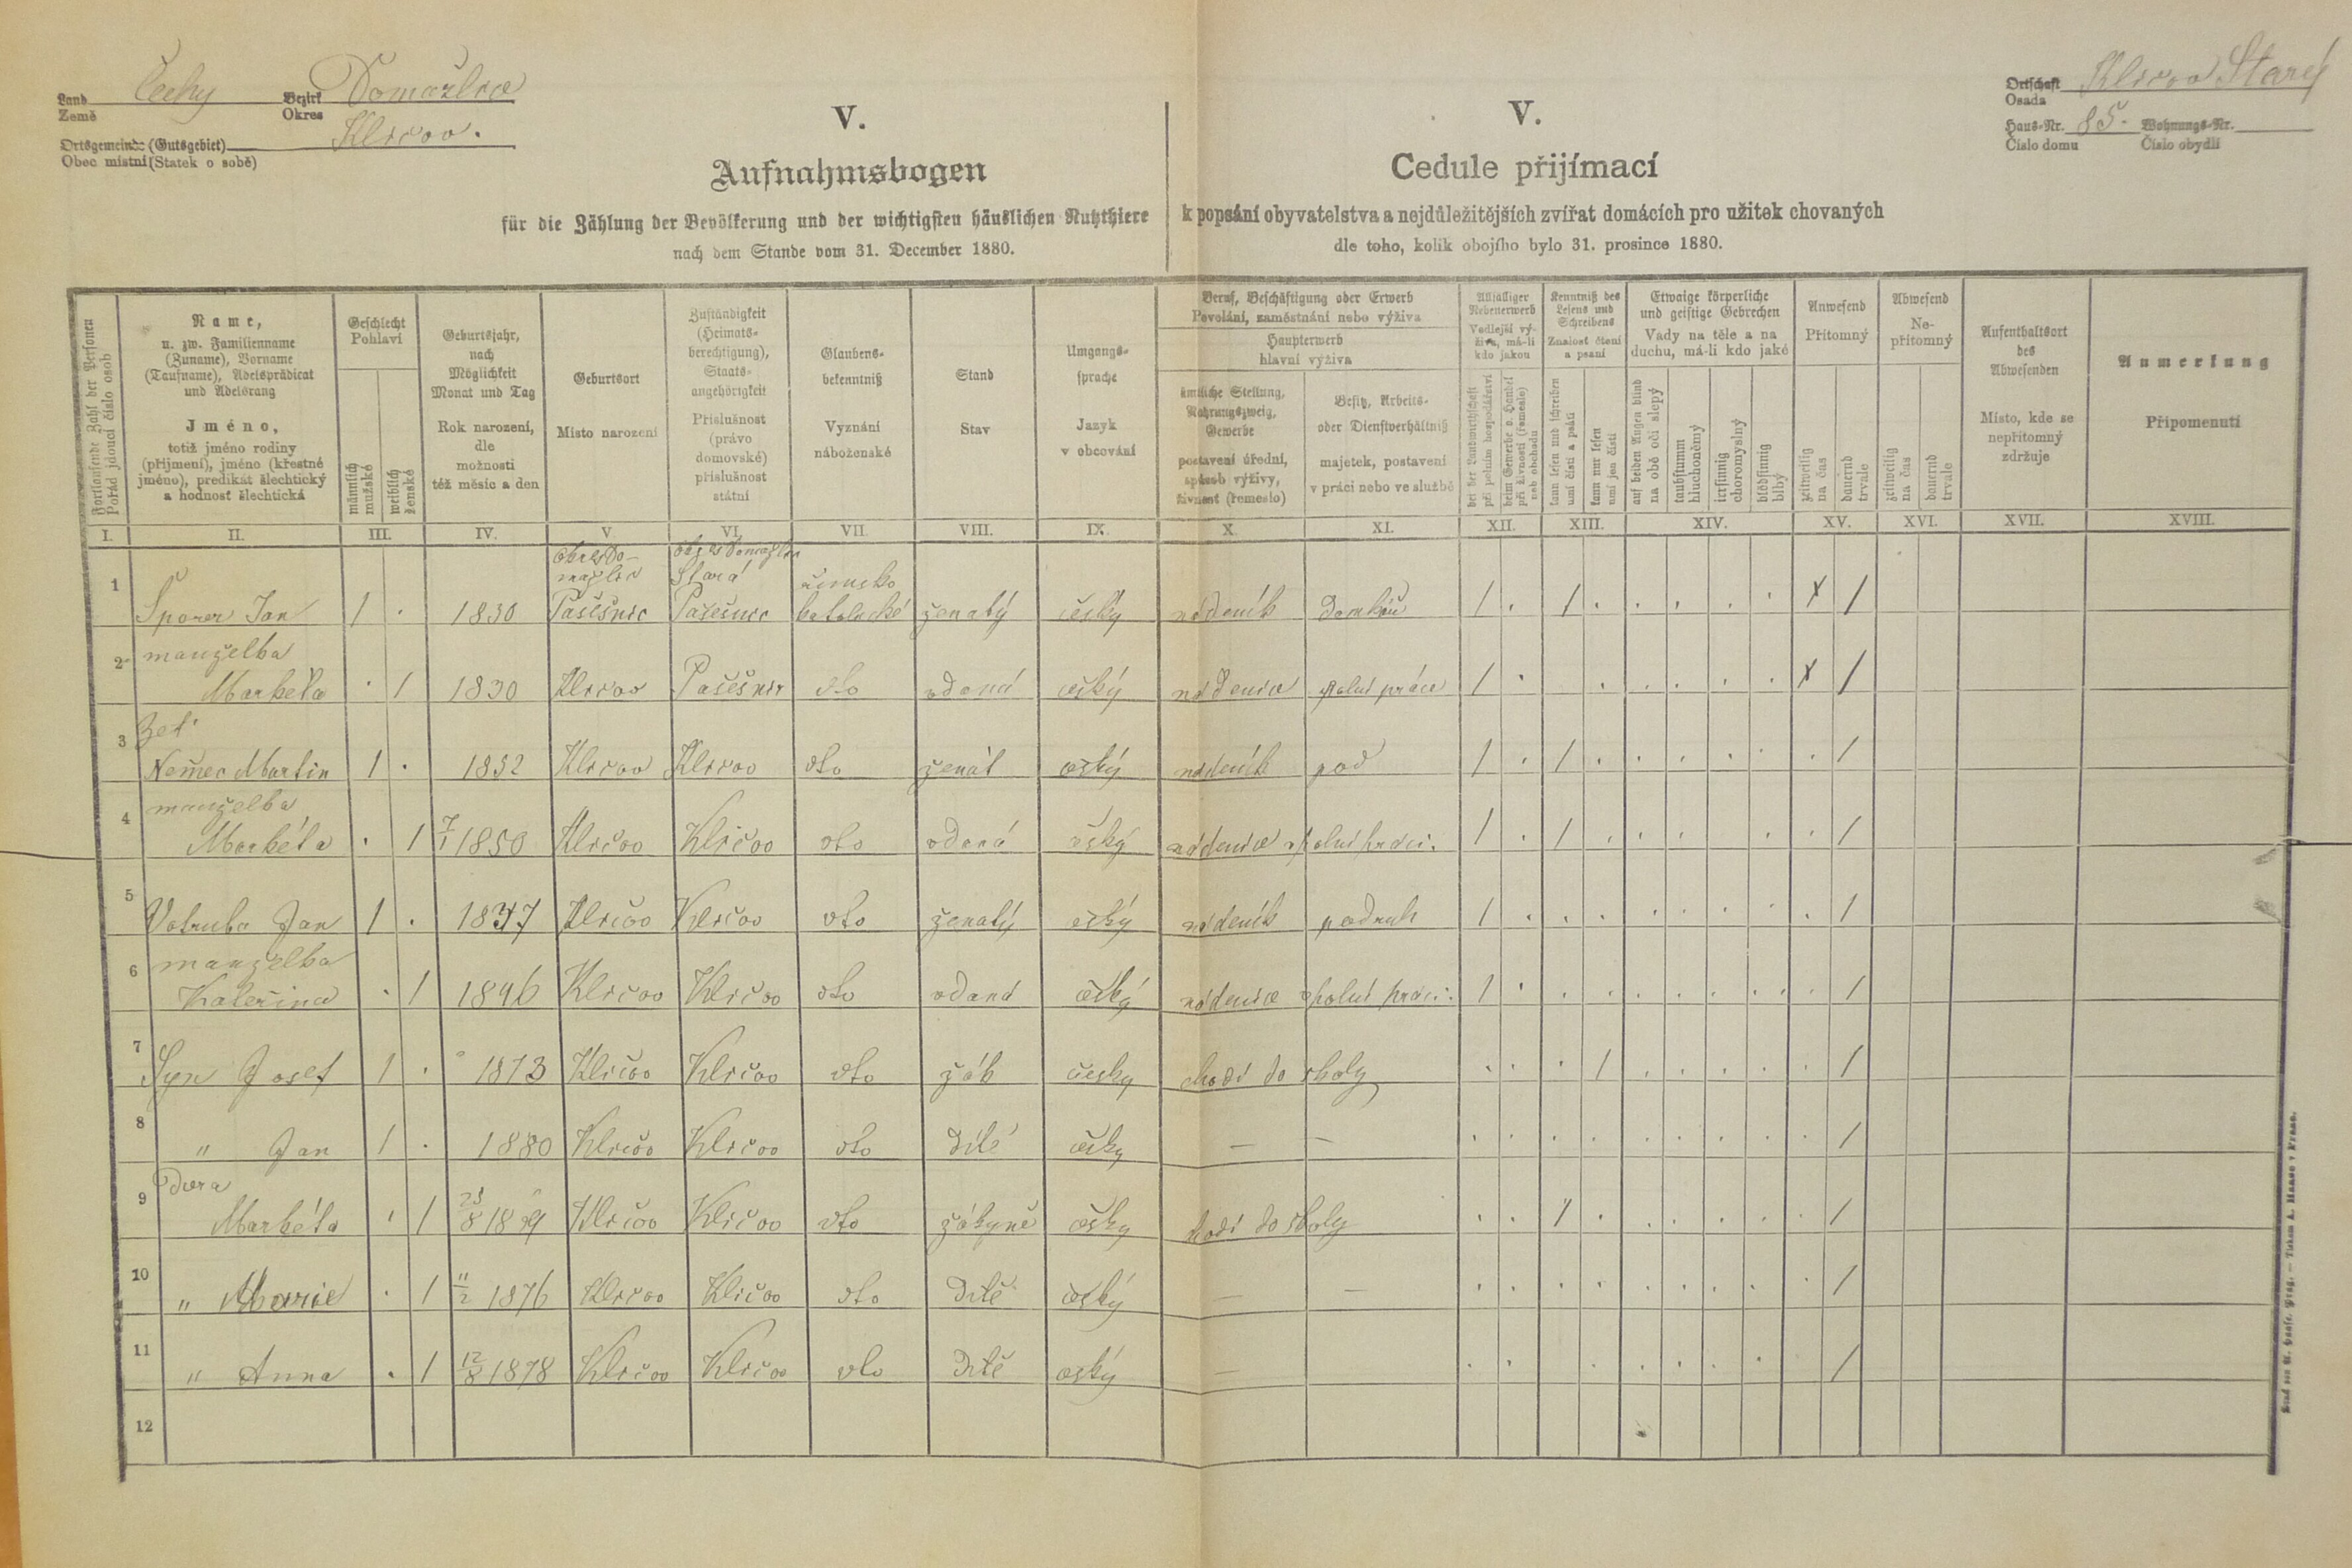 Land Čechy Bezirk Domažlice
Země Okres
Ortsgemeinde (Gutsgebiet) Kličov.
Obec místní (Statek o sobě)
Ortschaft Kličov Starý
Osada
Haus-Nr. 85. Wohnungs-Nr.
Číslo domu Číslo obydlí
V.
Aufnahmsbogen
für die Zählung der Bevölkerung und der wichtigsten häuslichen Nutzthiere
nach dem Stande vom 31. December 1880.
V.
Cedule přijímací
k popsání obyvatelstva a nejdůležitějších zvířat domácích pro užitek chovaných
dle toho, kolik obojího bylo 31. prosince 1880.
Fortlaufende Zahl der Personen
Pořád jdoucí číslo osob
Name,
u. zw. Familienname
(Zuname), Vorname
(Taufname), Adelsprädicat
und Adelsrang
Jméno,
totiž jméno rodiny
(příjmení), jméno (křestné
jméno), predikát šlechtický
a hodnost šlechtická
Geschlecht
Pohlaví
männlich
mužské
weiblich
ženské
Geburtsjahr,
nach
Möglichkeit
Monat und Tag
Rok narození,
dle
možnosti
též měsíc a den
Geburtsort
Místo narození
Zuständigkeit
(Heimats-
berechtigung),
Staats-
angehörigkeit
Příslušnost
(právo
domovské)
příslušnost
státní
Glaubens-
bekenntniß
Vyznání
náboženské
Stand
Stav
Umgangs-
sprache
Jazyk
v obcování
Beruf, Beschäftigung oder Erwerb
Povolání, zaměstnání nebo výživa
Haupterwerb
hlavní výživa
ämtliche Stellung,
Nahrungszweig,
Gewerbe
postavení úřední,
způsob výživy,
živnost (řemeslo)
Besitz, Arbeits-
oder Dienstverhältniß
majetek, postavení
v práci nebo ve službě
Allfälliger
Nebenerwerb
Vedlejší vý-
živa, má-li
kdo jakou
bei der Landwirtschaft
při polním hospodářství
beim Gewerbe o. Handel
při živnosti (řemesle)
neb obchodu
Kenntniß des
Lesens und
Schreibens
Znalost čtení
a psaní
kann lesen und schreiben
umí čísti a psáti
kann nur lesen
umí jen čísti
Etwaige körperliche
und geistige Gebrechen
Vady na těle a na
duchu, má-li kdo jaké
auf beiden Augen blind
na obě oči slepý
taubstumm
hluchoněmý
irrsinnig
choromyslný
blödsinnig
blbý
Anwesend
Přítomný
zeitweilig
na čas
dauernd
trvale
Abwesend
Ne-
přítomný
zeitweilig
na čas
dauernd
trvale
Aufenthaltsort
des
Abwesenden
Místo, kde se
nepřítomný
zdržuje
Anmerkung
Připomenutí
I. II. III. IV. V. VI. VII. VIII. IX. X. XI. XII. XIII. XIV. XV. XVI. XVII. XVIII.
okres Do- okres Domažlice
mažlice Stará římsko
1 Šporer Jan 1 . 1830 Pašešnic Pašešnic katolické ženatý český nádeník domkář / . / . . . . . X /
2 manželka
Markéta . 1 1830 Kličov Pašešnic oto vdaná český nádenice polní práce / . . . . . . X /
3 Zeť
Němec Martin 1 . 1852 Kličov Kličov oto ženat český nádeník pod / . / . . . . . . /
4 manželka
Markéta . 1 7/1 1850 Kličov Kličov oto vdaná český nádenice polní práci. / . / . . . . . . /
5 Votruba Jan 1 . 1847 Kličov Kličov oto ženatý český nádeník podruh / . . . . . . . . /
6 manželka
Kateřina . 1 1846 Kličov Kličov oto vdaná český nádenice polní práci. / . . . . . . . . /
7 Syn Josef 1 . 1873 Kličov Kličov oto žák česky chodí do školy . . . / . . . . . /
8 " Jan 1 . 1880 Kličov Kličov oto dítě česky — — . . . . . . . . . /
9 Dcera
Markéta . 1 Kličov Kličov oto žákyně česky chodí do školy . . / . . . . . . /
10 " Marie . 1 11/2 1876 Kličov Kličov oto dítě český — — . . . . . . . . . /
11 " Anna . 1 12/8 1878 Kličov Kličov oto dítě český — . . . . . . /
12